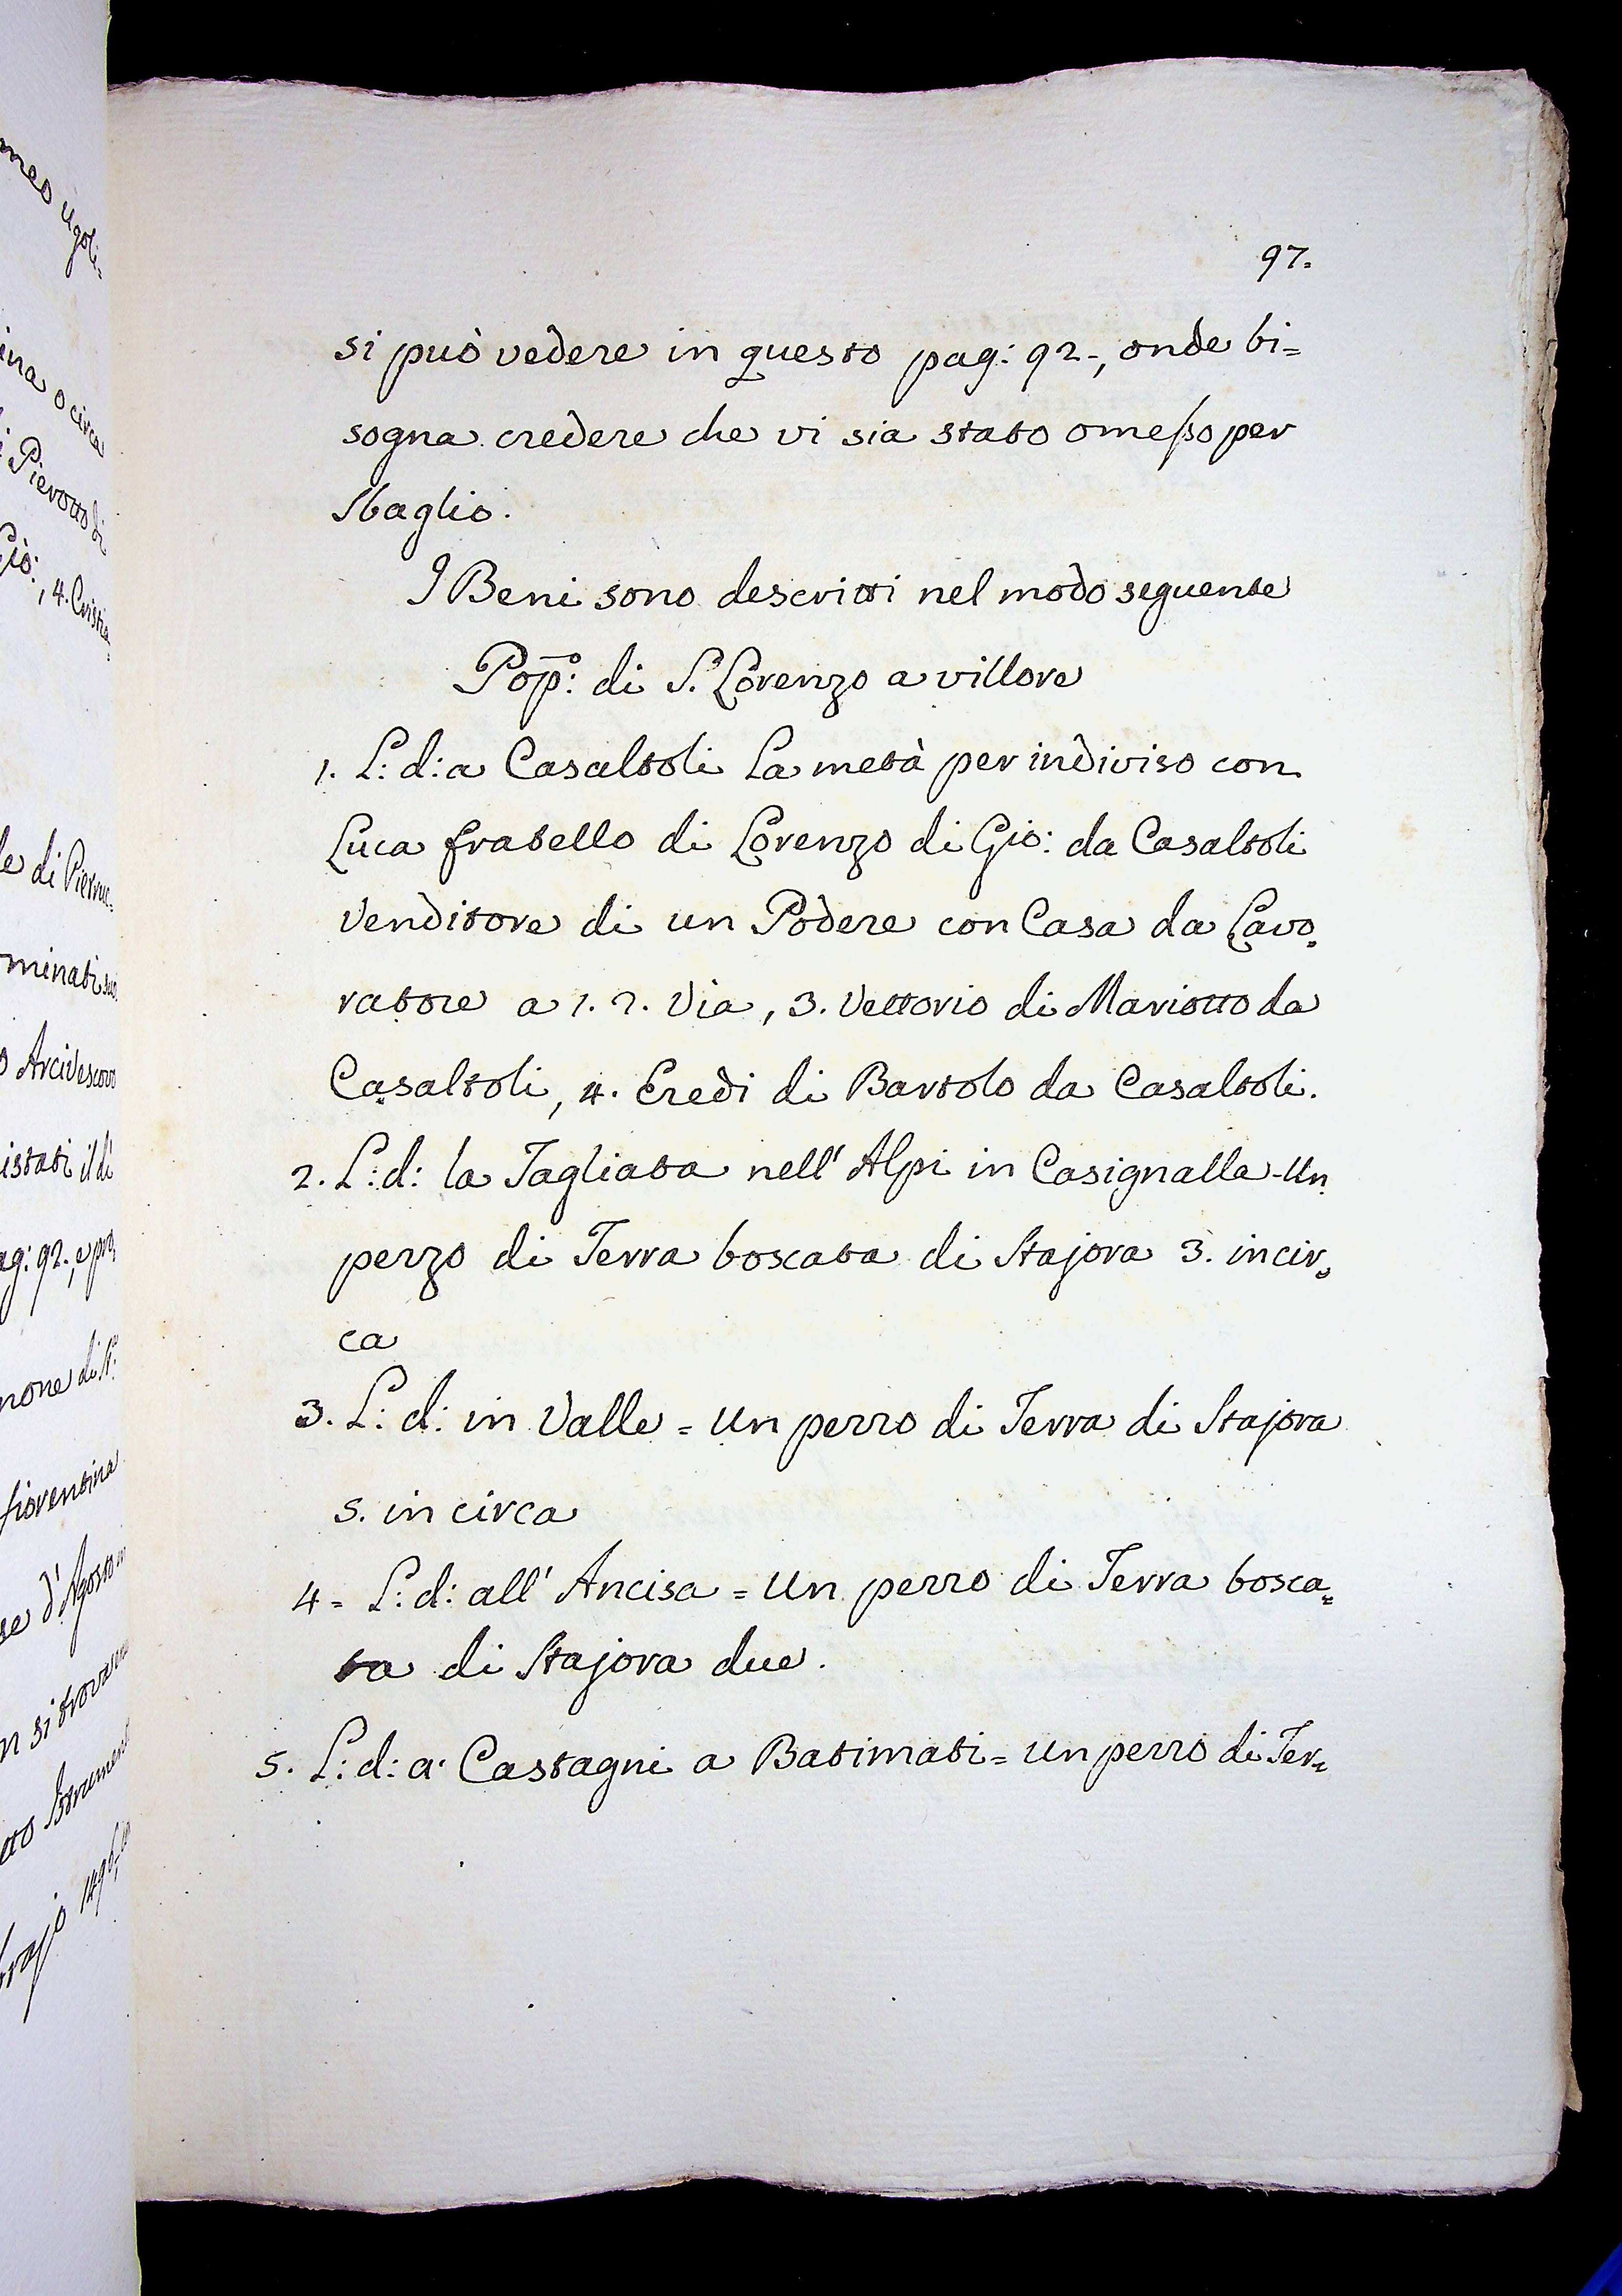 97.
si può vedere in questo pag: 92-, onde bi=
sogna credere che vi sia stato omeßo per
sbaglio.
I Beni sono descritti nel modo seguente
Pop̄:º di S. Lorenzo a villore
1. L: d: a Casaltoli La metà per indiviso con
Luca fratello di Lorenzo di Gio: da Casaltoli
Venditore di un Podere con Casa da Lavo=
ratore a 1. 2. Via, 3. Vettorio di Mariotto da
Casaltoli, 4. Eredi di Bartolo da Casaltoli.
2. L: d: la Tagliata nell' Alpi in Casignalla - Un
pezzo di Terra boscata di Stajora 3. incir=
ca
3. L: d: in Valle = Un pezzo di Terra di Stajora
5. in circa
4 = L: d: all' Ancisa = Un pezzo di Terra bosca=
ta di Stajora due.
5. L: d: a' Castagni a Batimati = Un pezzo di Ter=
ina o circa
Pierotto di
Gio:, 4. Cristia
minati
Arcivescovo
istati il dì
ag: 92., e
none di
fiorentina
se d'Agosto
n si trova
1496,